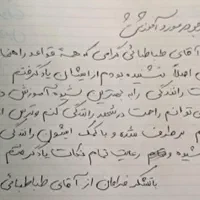 در مورد آموزش
آقای طباطبائی گرامی که همه قواعد راهنما
اصلاً نشنیده بودم از ایشان یاد گرفتم
رانندگی را به بهترین شیوه آموزش د
توانم راحت در شهر رانندگی کنم و ترس
م برطرف شده و با کمک ایشون رانندگی
شیوه و رعایت تمام نکات یاد گرفتم
باتشکر فراوان از آقای طباطبائی